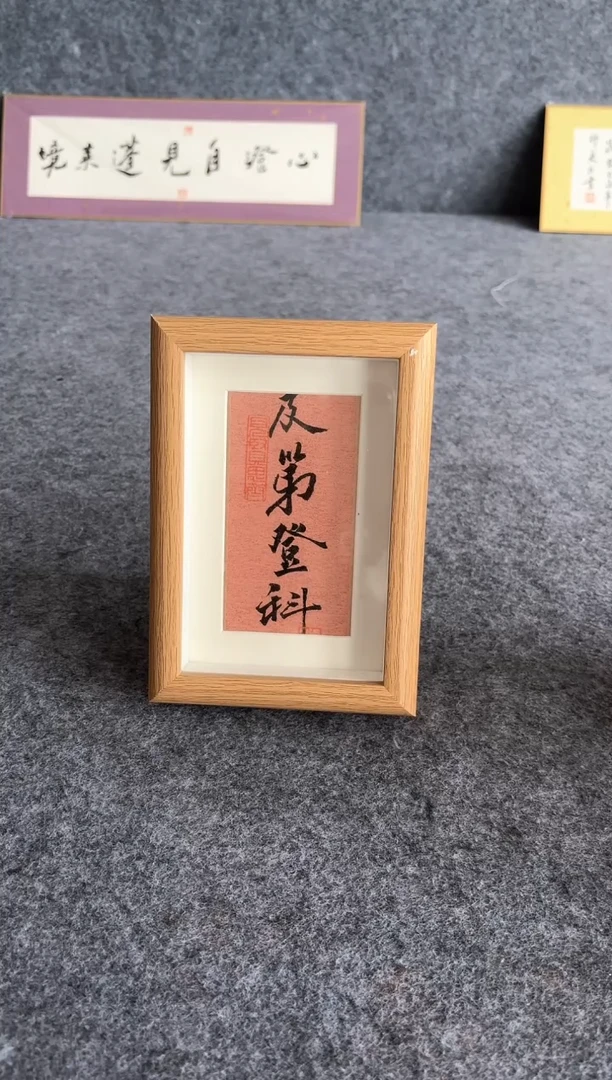 心澄自見蓬萊境
及第登科